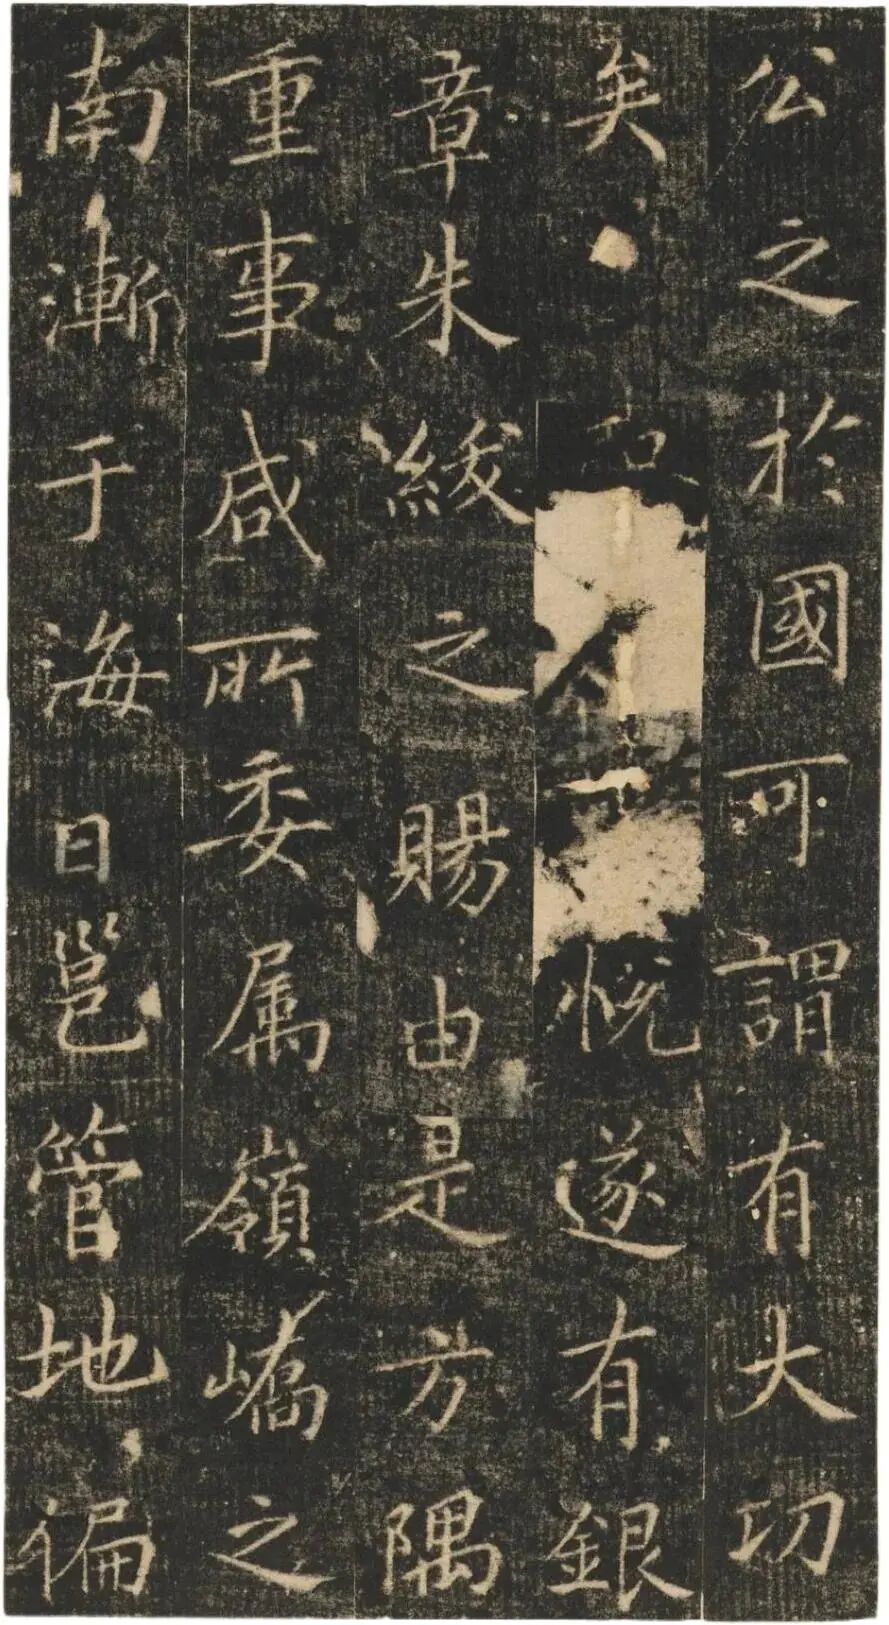 公之於國可謂有大功
矣 和 悅遂有銀
章朱紱之賜由是方隅
重事咸所委属嶺嶠之
南漸于海日邕管地偏